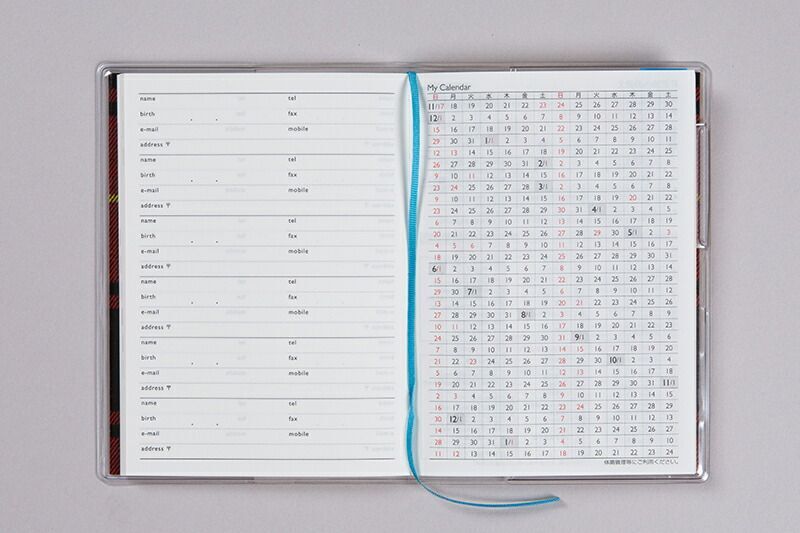 name tel
birth . . fax
e-mail mobile
address 〒
name tel
birth . . fax
e-mail mobile
address 〒
name tel
birth . . fax
e-mail mobile
address 〒
name tel
birth . . fax
e-mail mobile
address 〒
name tel
birth . . fax
e-mail mobile
address 〒
name tel
birth . . fax
e-mail mobile
address 〒
My Calendar
日 月 火 水 木 金 土 日 月 火 水 木 金 土
11/17 18 19 20 21 22 23 24 25 26 27 28 29 30
12/1 2 3 4 5 6 7 8 9 10 11 12 13 14
15 16 17 18 19 20 21 22 23 24 25 26 27 28
29 30 31 1/1 2 3 4 5 6 7 8 9 10 11
12 13 14 15 16 17 18 19 20 21 22 23 24 25
26 27 28 29 30 31 2/1 2 3 4 5 6 7 8
9 10 11 12 13 14 15 16 17 18 19 20 21 22
23 24 25 26 27 28 3/1 2 3 4 5 6 7 8
9 10 11 12 13 14 15 16 17 18 19 20 21 22
23 24 25 26 27 28 29 30 31 4/1 2 3 4 5
6 7 8 9 10 11 12 13 14 15 16 17 18 19
20 21 22 23 24 25 26 27 28 29 30 5/1 2 3
4 5 6 7 8 9 10 11 12 13 14 15 16 17
18 19 20 21 22 23 24 25 26 27 28 29 30 31
6/1 2 3 4 5 6 7 8 9 10 11 12 13 14
15 16 17 18 19 20 21 22 23 24 25 26 27 28
29 30 7/1 2 3 4 5 6 7 8 9 10 11 12
13 14 15 16 17 18 19 20 21 22 23 24 25 26
27 28 29 30 31 8/1 2 3 4 5 6 7 8 9
10 11 12 13 14 15 16 17 18 19 20 21 22 23
24 25 26 27 28 29 30 31 9/1 2 3 4 5 6
7 8 9 10 11 12 13 14 15 16 17 18 19 20
21 22 23 24 25 26 27 28 29 30 10/1 2 3 4
5 6 7 8 9 10 11 12 13 14 15 16 17 18
19 20 21 22 23 24 25 26 27 28 29 30 31 11/1
2 3 4 5 6 7 8 9 10 11 12 13 14 15
16 17 18 19 20 21 22 23 24 25 26 27 28 29
30 12/1 2 3 4 5 6 7 8 9 10 11 12 13
14 15 16 17 18 19 20 21 22 23 24 25 26 27
28 29 30 31 1/1 2 3 4 5 6 7 8 9 10
11 12 13 14 15 16 17 18 19 20 21 22 23 24
体調管理等にご利用ください。